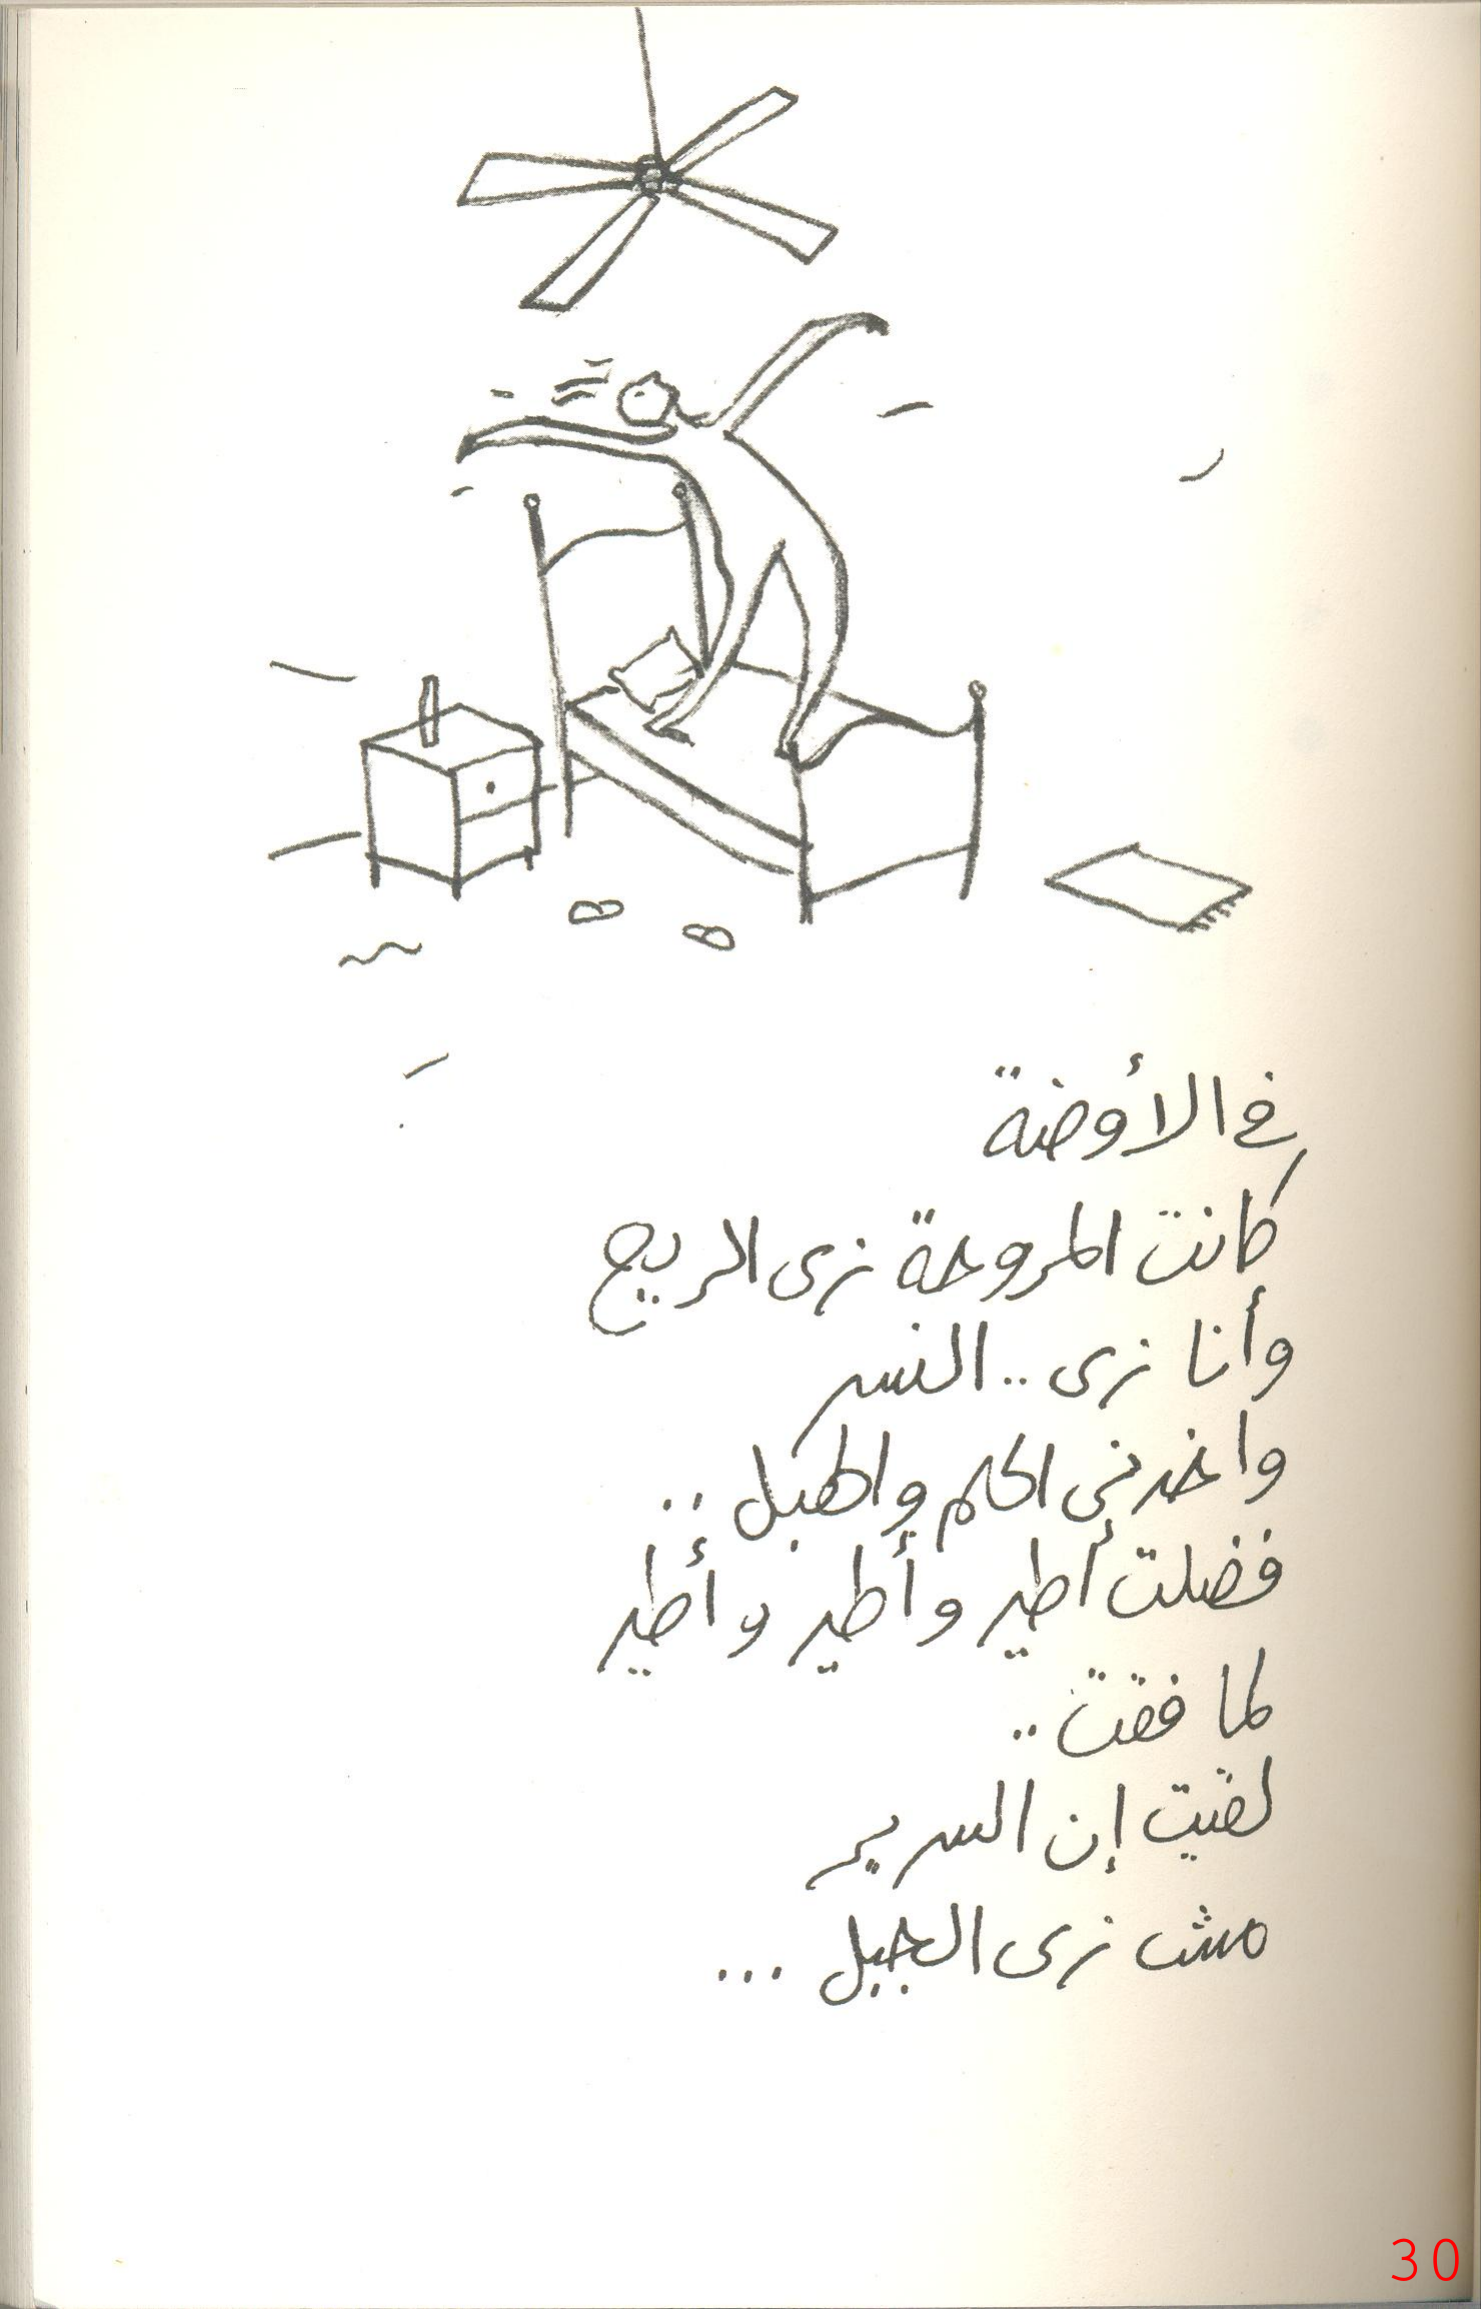 فى الأوضة
كانت المروحة زى الريح
وأنا زى .. النسر
واخدنى الحلم والهبل ..
فضلت أطير وأطير وأطير
لما فقت ..
لقيت إن السرير
مش زى الجبل ...
30